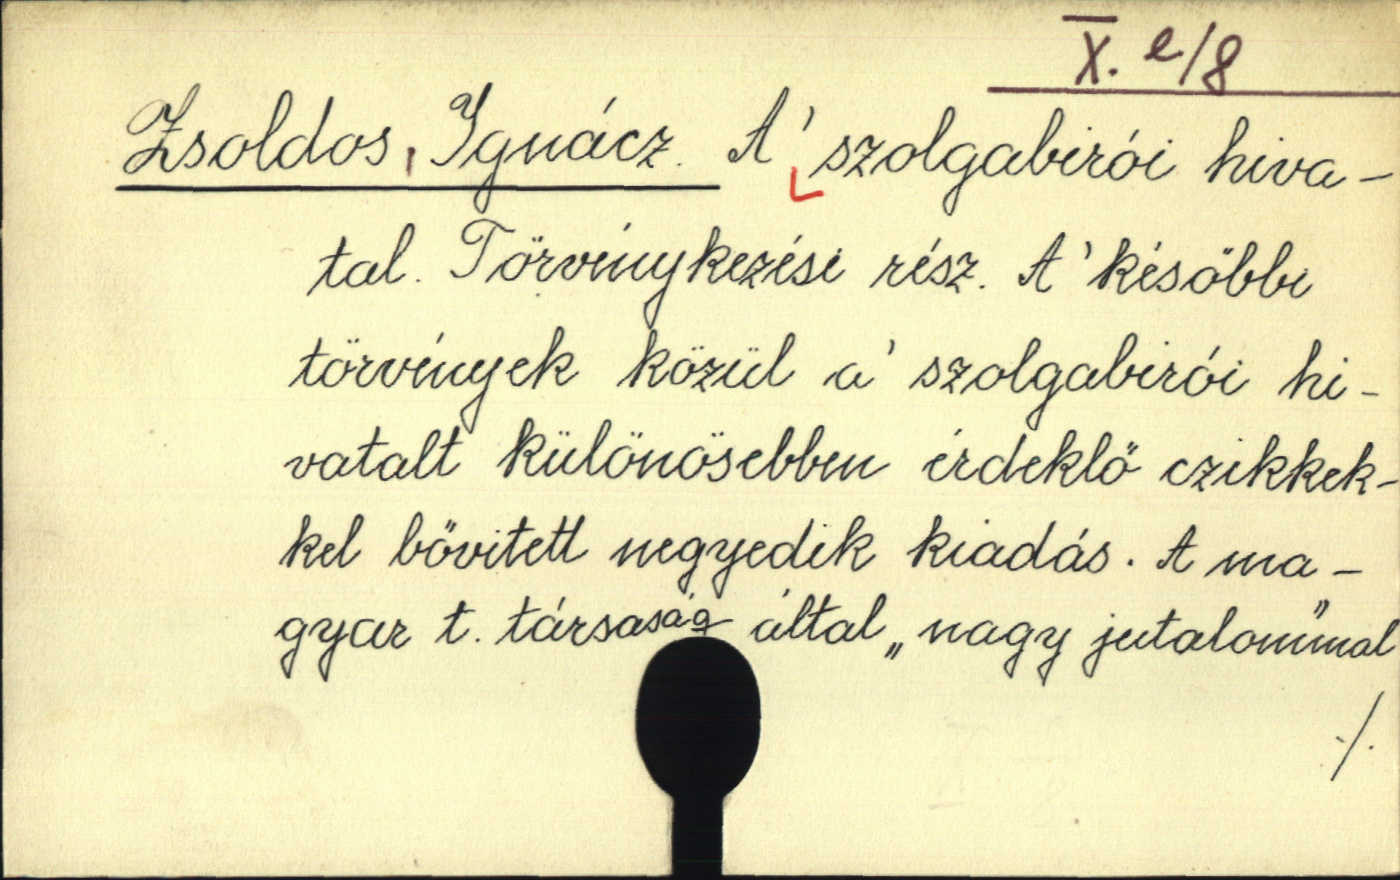 X. e/8
Zsoldos, Ignácz. A' szolgabirói hiva-
tal. Törvénykezési rész. A' későbbi
törvények közül a' szolgabirói hi-
vatalt különösebben érdeklő czikkek-
kel bővitett negyedik kiadás. A ma-
gyar t. társaság által „nagy jutalom"mal
./.